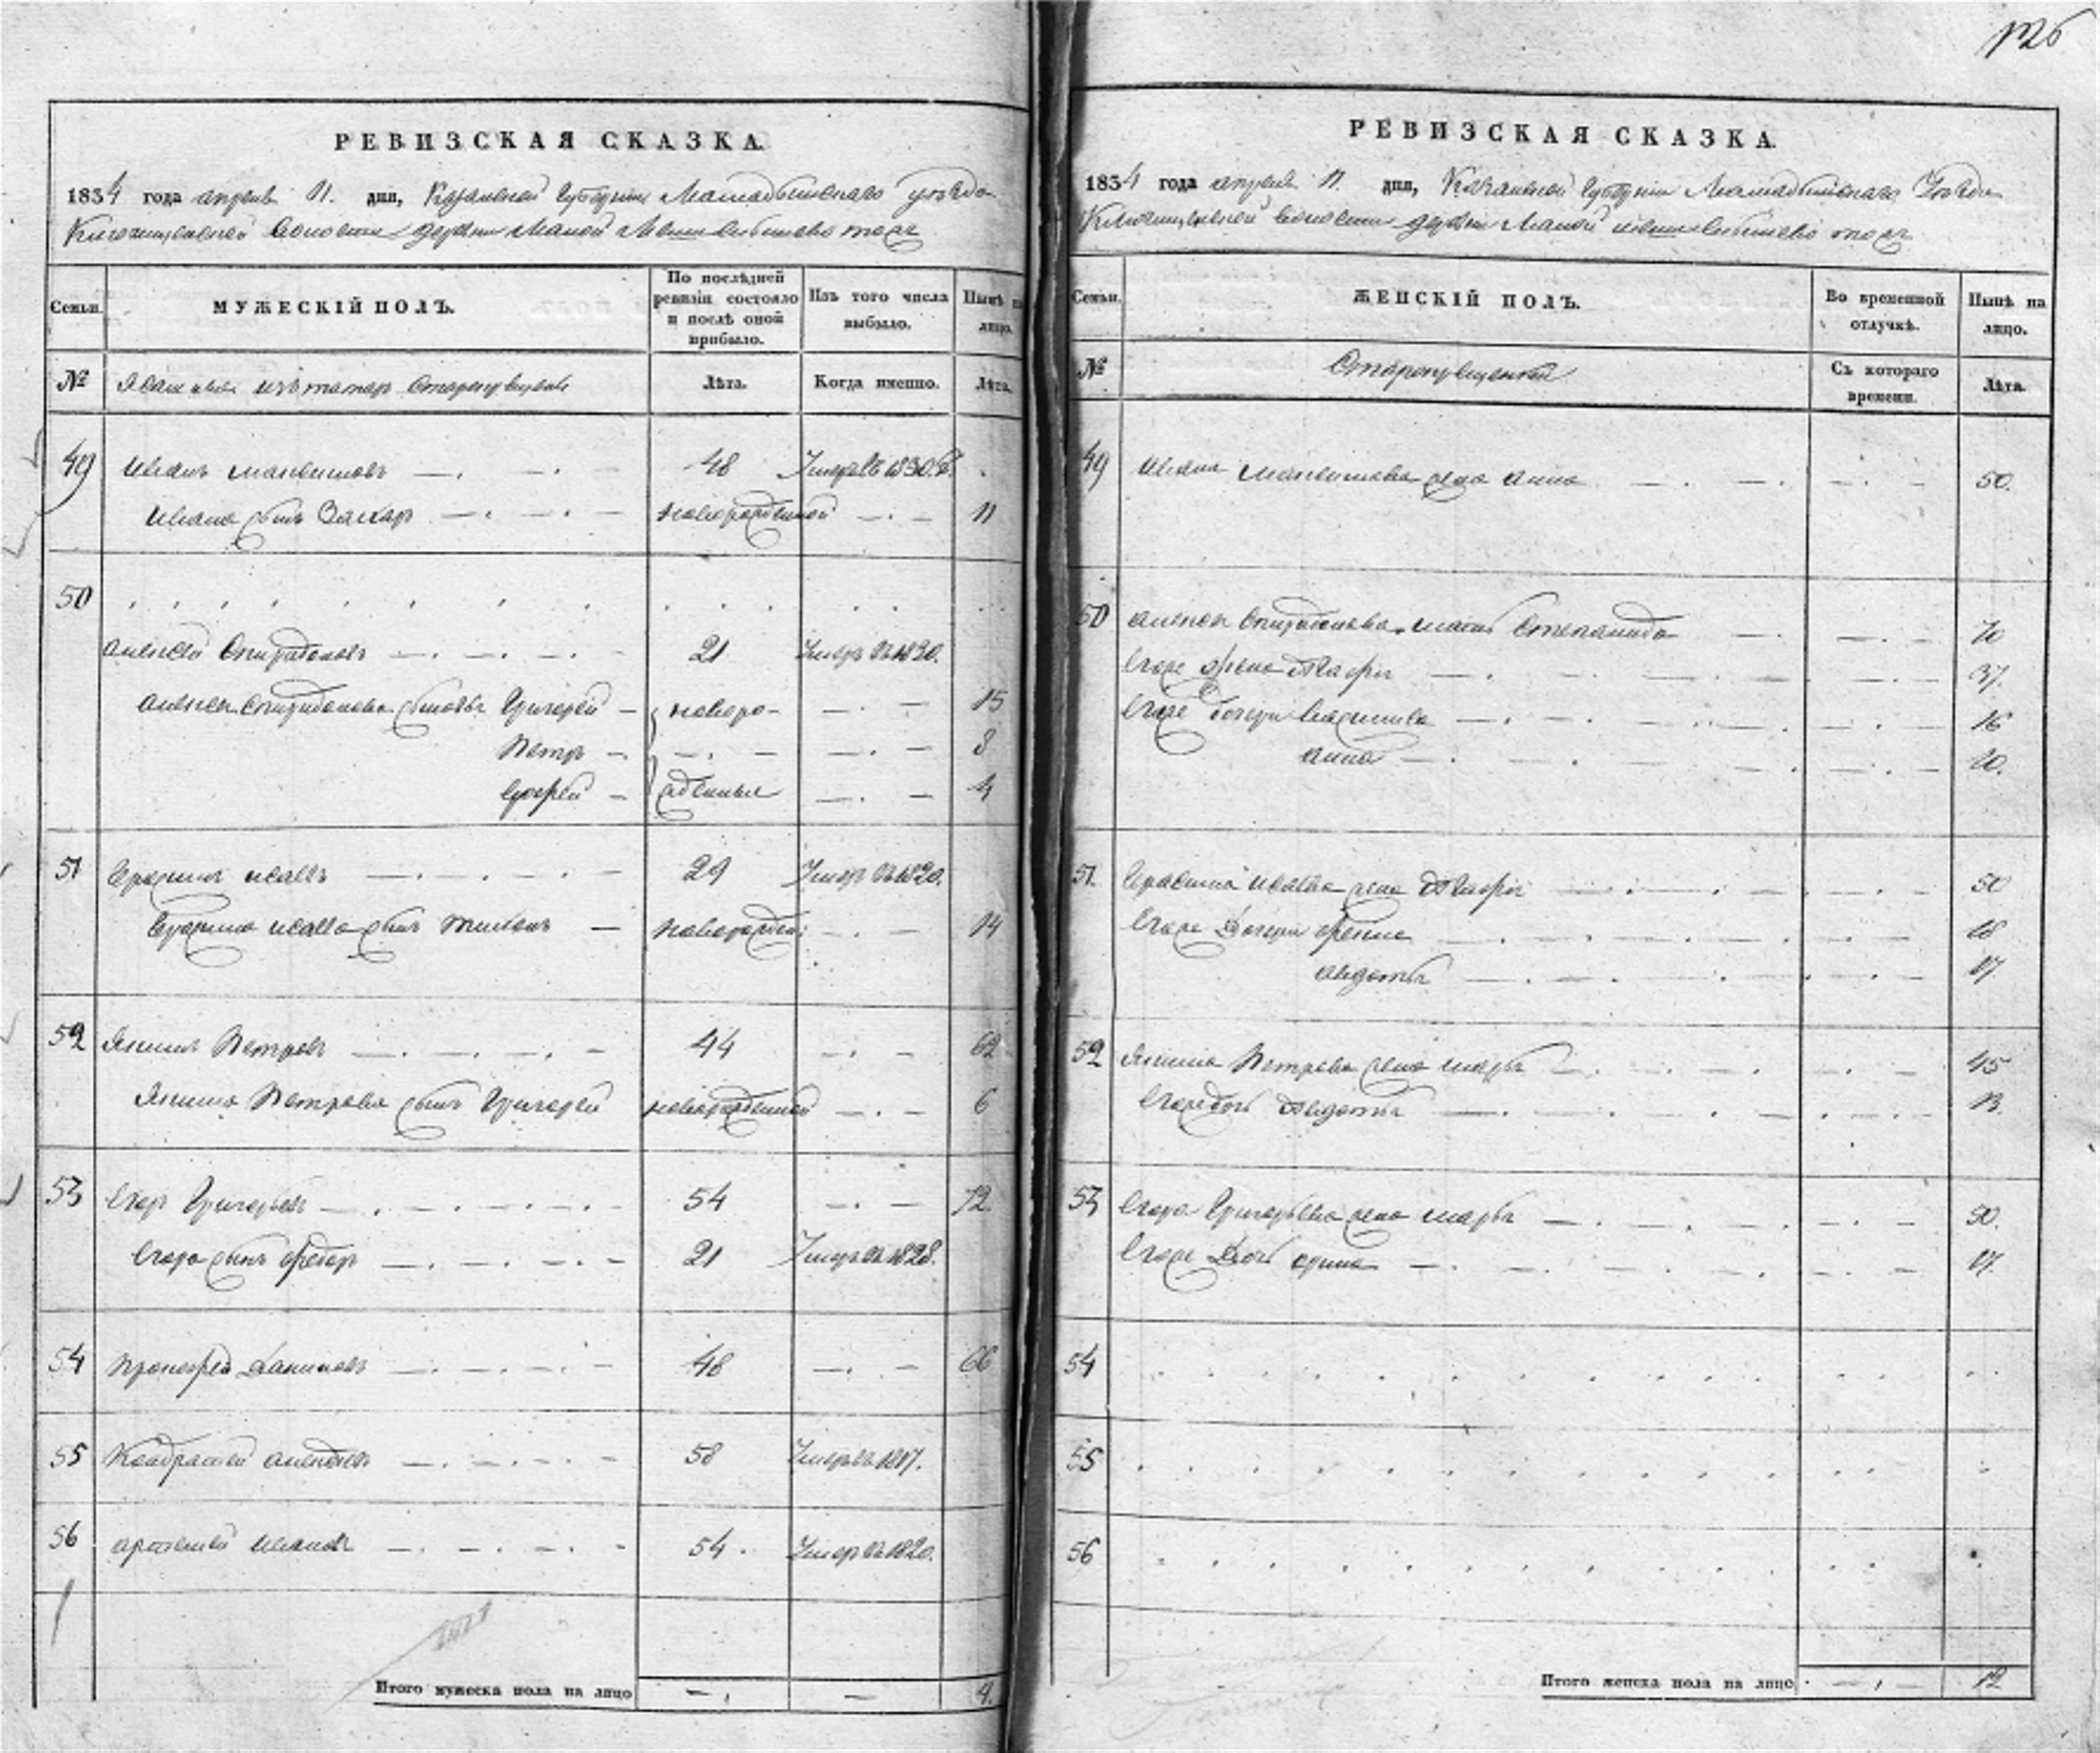 126
РЕВИЗСКАЯ СКАЗКА.
1834 года апреля 11. дня, Казанской Губернии Мамадышского уезда
Ключищенской волости деревни Малой
Семьи.
МУЖЕСКІЙ ПОЛЪ.
По послѣдней ревизіи состояло и послѣ оной прибыло.
Изъ того числа выбыло.
Нынѣ на лицо.
№
Ясашные изъ татар Старокрещены
Лѣта.
Когда именно.
Лѣта.
49 Иванъ 48 Умеръ въ 1830. г.
Ивана сынъ Захар новорожденной 11
50
алексей Спиридоновъ 21 Умеръ въ 1820.
алексея Спиридонова сыновья Григорей новоро- 15
Петръ 8
Сергей жденные 4
51 Ерасимъ исаевъ 29 Умеръ въ 1820.
Ерасима исаева сынъ новорожден: 14
52 Якимъ Петровъ 44 62
Якима Петрова сынъ Григорей новорожденной 6
53 Егоръ Григорьевъ 54 72.
Егора сынъ Федоръ 21 Умеръ въ 1828.
54 Прокофей Даниловъ 48 66
55 Кондратей алексеев 58 Умеръ въ 1817.
56 арсеней Иванов 54 Умеръ въ 1820.
Итого мужеска пола на лицо 9.
РЕВИЗСКАЯ СКАЗКА.
1834 года апреля 11. дня, Казанской Губернии Мамадышского Уезда
Ключищенской волости деревни Малой
Семьи.
ЖЕНСКІЙ ПОЛЪ.
Во временной отлучкѣ.
Нынѣ на лицо.
№
Старокрещенной
Съ котораго времени.
Лѣта.
49 Ивана жена анна 50.
50 алексея Спиридонова мать Степанида 70
Егоже жена Марфа 37.
Егоже дочери Василиса 16
анна 10.
51. Ерасима Исаева жена Марфа 50
Егоже Дочери 18
авдотья 17.
52 Якима Петрова жена марья 45
Егоже дочь Авдотья 13.
53 Егора Григорьева жена марья 50.
Егоже Дочь орина 17.
54
55
56
Итого женска пола на лицо 12